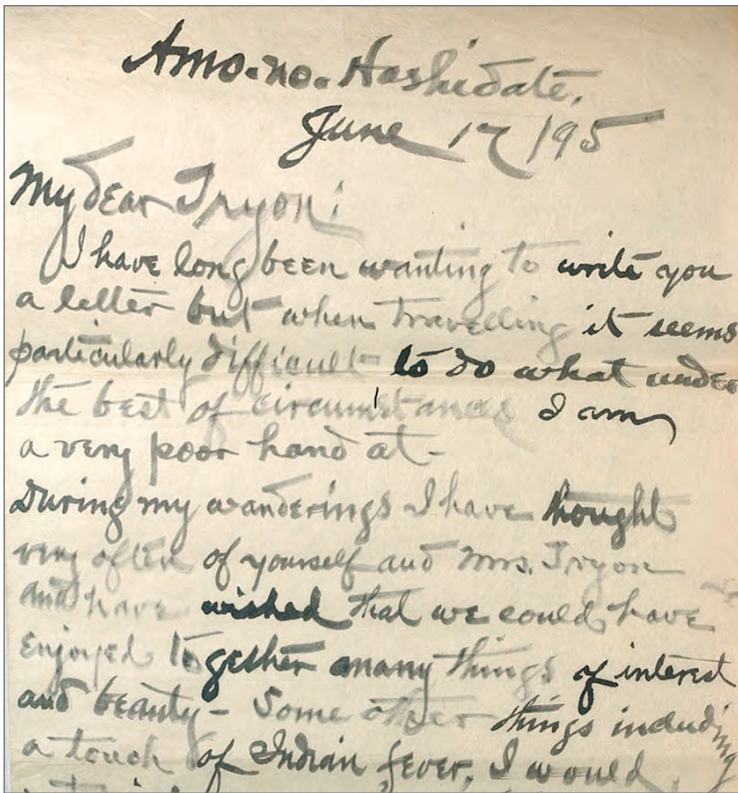 Amo.no.Hashidate.
June 17/95
My dear Tryon:
I have long been wanting to write you
a letter but when travelling it seems
particularly difficult to do what under
the best of circumstances I am
a very poor hand at -
During my wanderings I have thought
very often of yourself and Mrs. Tryon
and have wished that we could have
enjoyed together many things of interest
and beauty - Some other things including
a touch of Indian fever, I would